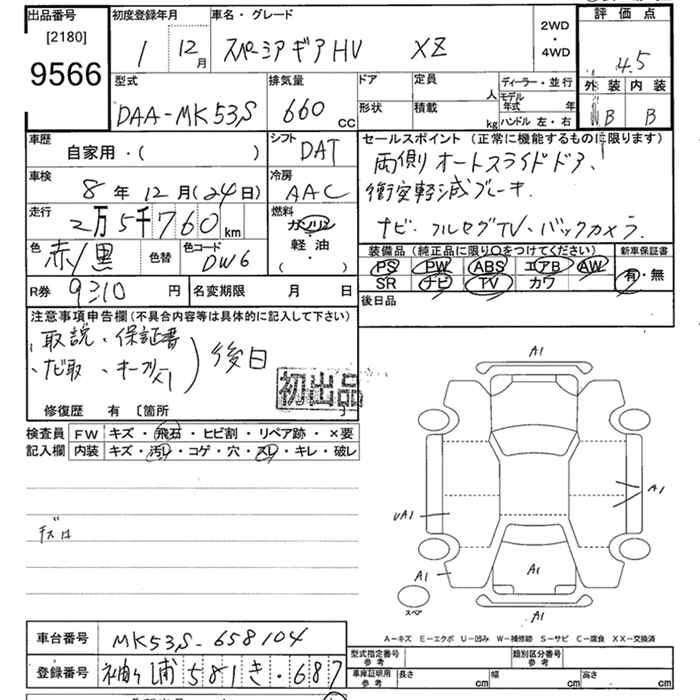 出品番号 初度登録年月 車名・グレード 評価点
[2180] 1 12月 スペーシアギアHV XZ 2WD・4WD 4.5
9566
型式 排気量 ドア 定員 人 ディーラー・並行 外装 内装
DAA-MK53S 660 CC 形状 積載 kg モデル年式 年 B B
ハンドル 左・右
車歴 シフト セールスポイント (正常に機能するものに限ります)
自家用・( ) DAT 両側オートスライドドア、
車検 冷房 衝突軽減ブレーキ.
8年12月(24日) AAC ナビ・フルセグTV・バックカメラ.
走行 燃料
2万5千760km ガソリン・軽油・( )
色 色替 色コード 装備品 (純正品に限り〇をつけてください) 新車保証書
赤/黒 DW6 PS PW ABS エアB AW 有・無
SR ナビ TV カワ
R券 9310円 名変期限 月 日 後日品
注意事項申告欄(不具合内容等は具体的に記入して下さい)
取説、保証書
ナビ取、 後日
初出品
修復歴 有 〔箇所 〕
検査員 FW キズ・飛石・ヒビ割・リペア跡・×要
記入欄 内装 キズ・汚レ・コゲ・穴・スレ・キレ・破レ
A1
A1
UA1
A1
A1
A1
スペア
A-キズ E-エクボ U-凹み W-補修跡 S-サビ C-腐食 XX-交換済
車台番号 MK53S-658104 型式指定番号 参考 類別区分番号 参考
登録番号 袖ヶ浦581き・687 車庫証明用 参考 長さ cm 幅 cm 高さ cm